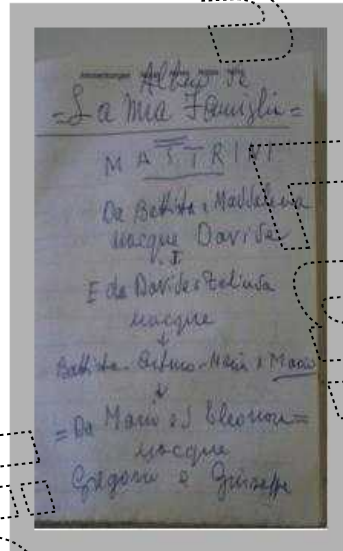 Albero de
= La Mia Famiglia =
MASTRINI
Da Battista e Maddalena
nacque Davide
E da Davide e Zelinda
nacque
Battista - Arturo - Neri e Mario
= Da Mario ed Eleonora =
nacque
Gregorio e Giuseppe